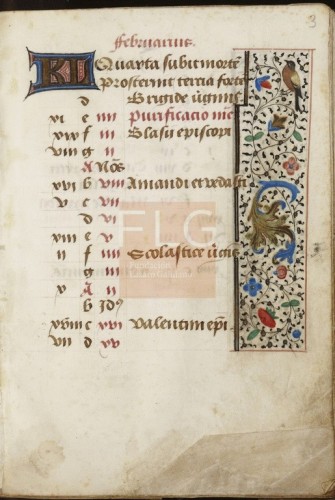 3
februarius
KL Quarta subit mortē
Prosternit tercia forte
Brigide v̄ginis
d
xi e iiii Purificacio
xix f iii Blasii episcopi
viii g ii
A Nōs
xvi b viii Amandi et vedasti
v c vii
d vi
xiii e v
ii f iiii Scolastice
g iii
x A ii
b Jdꝰ
xviii c xvi Valentini ep̄i
vii d xv
FLG